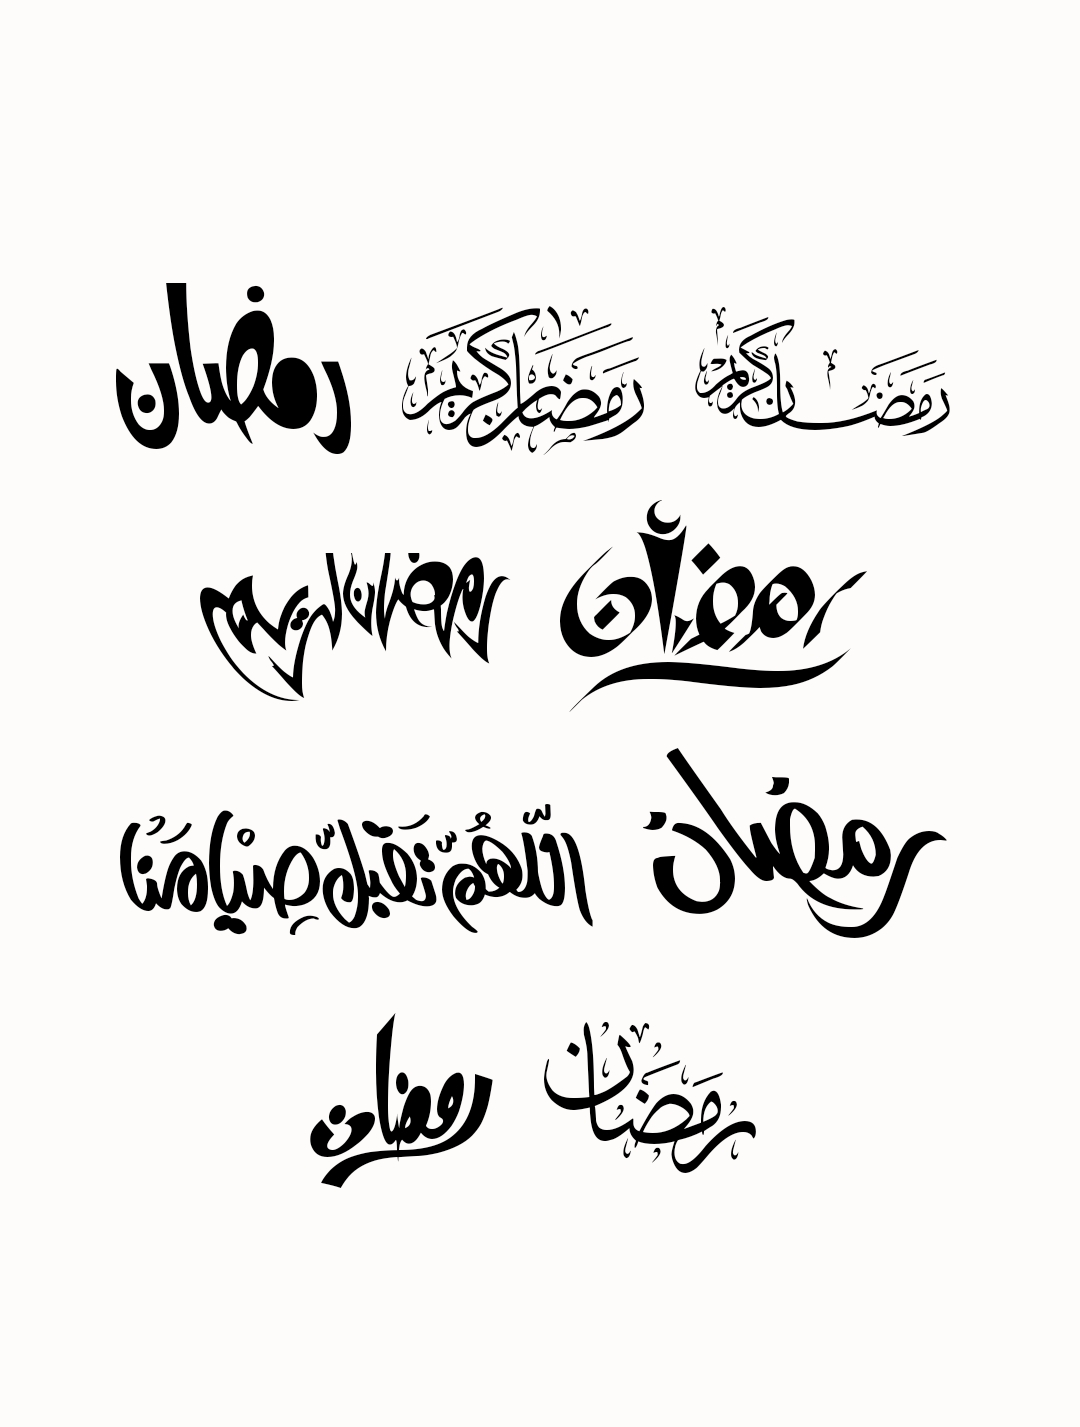 رَمَضَان كَرِيْم رَمَضَان كَرِيْم رمضان
رمضان رمضان كريم
رمضان اللّهُمّ تَقبّل صِيَامَنا
رَمَضَان رمضان